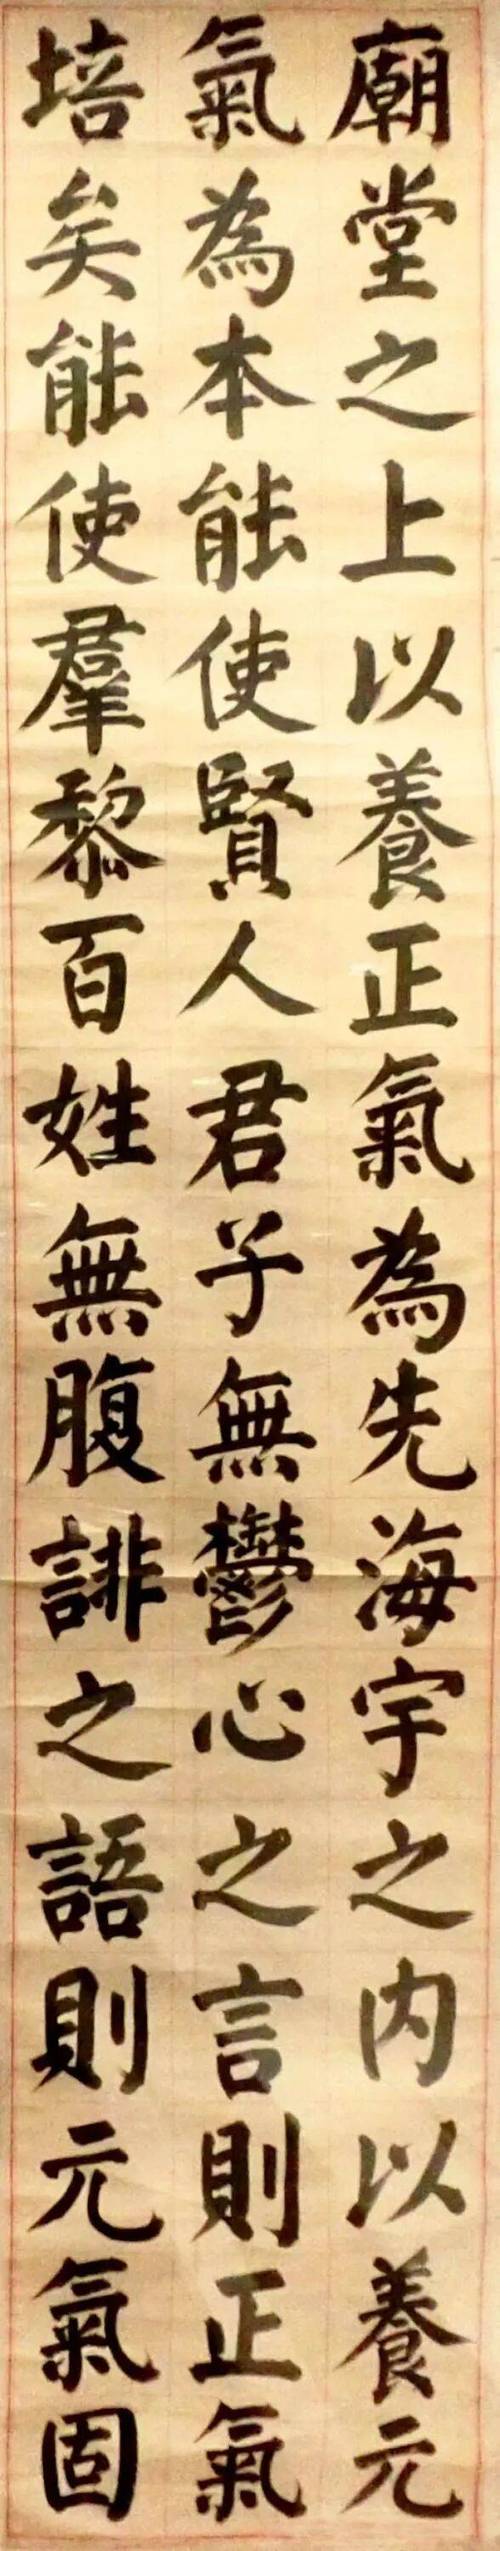 廟堂之上以養正氣為先海宇之内以養元
氣為本能使賢人君子無鬱心之言則正氣
培矣能使羣黎百姓無腹誹之語則元氣固